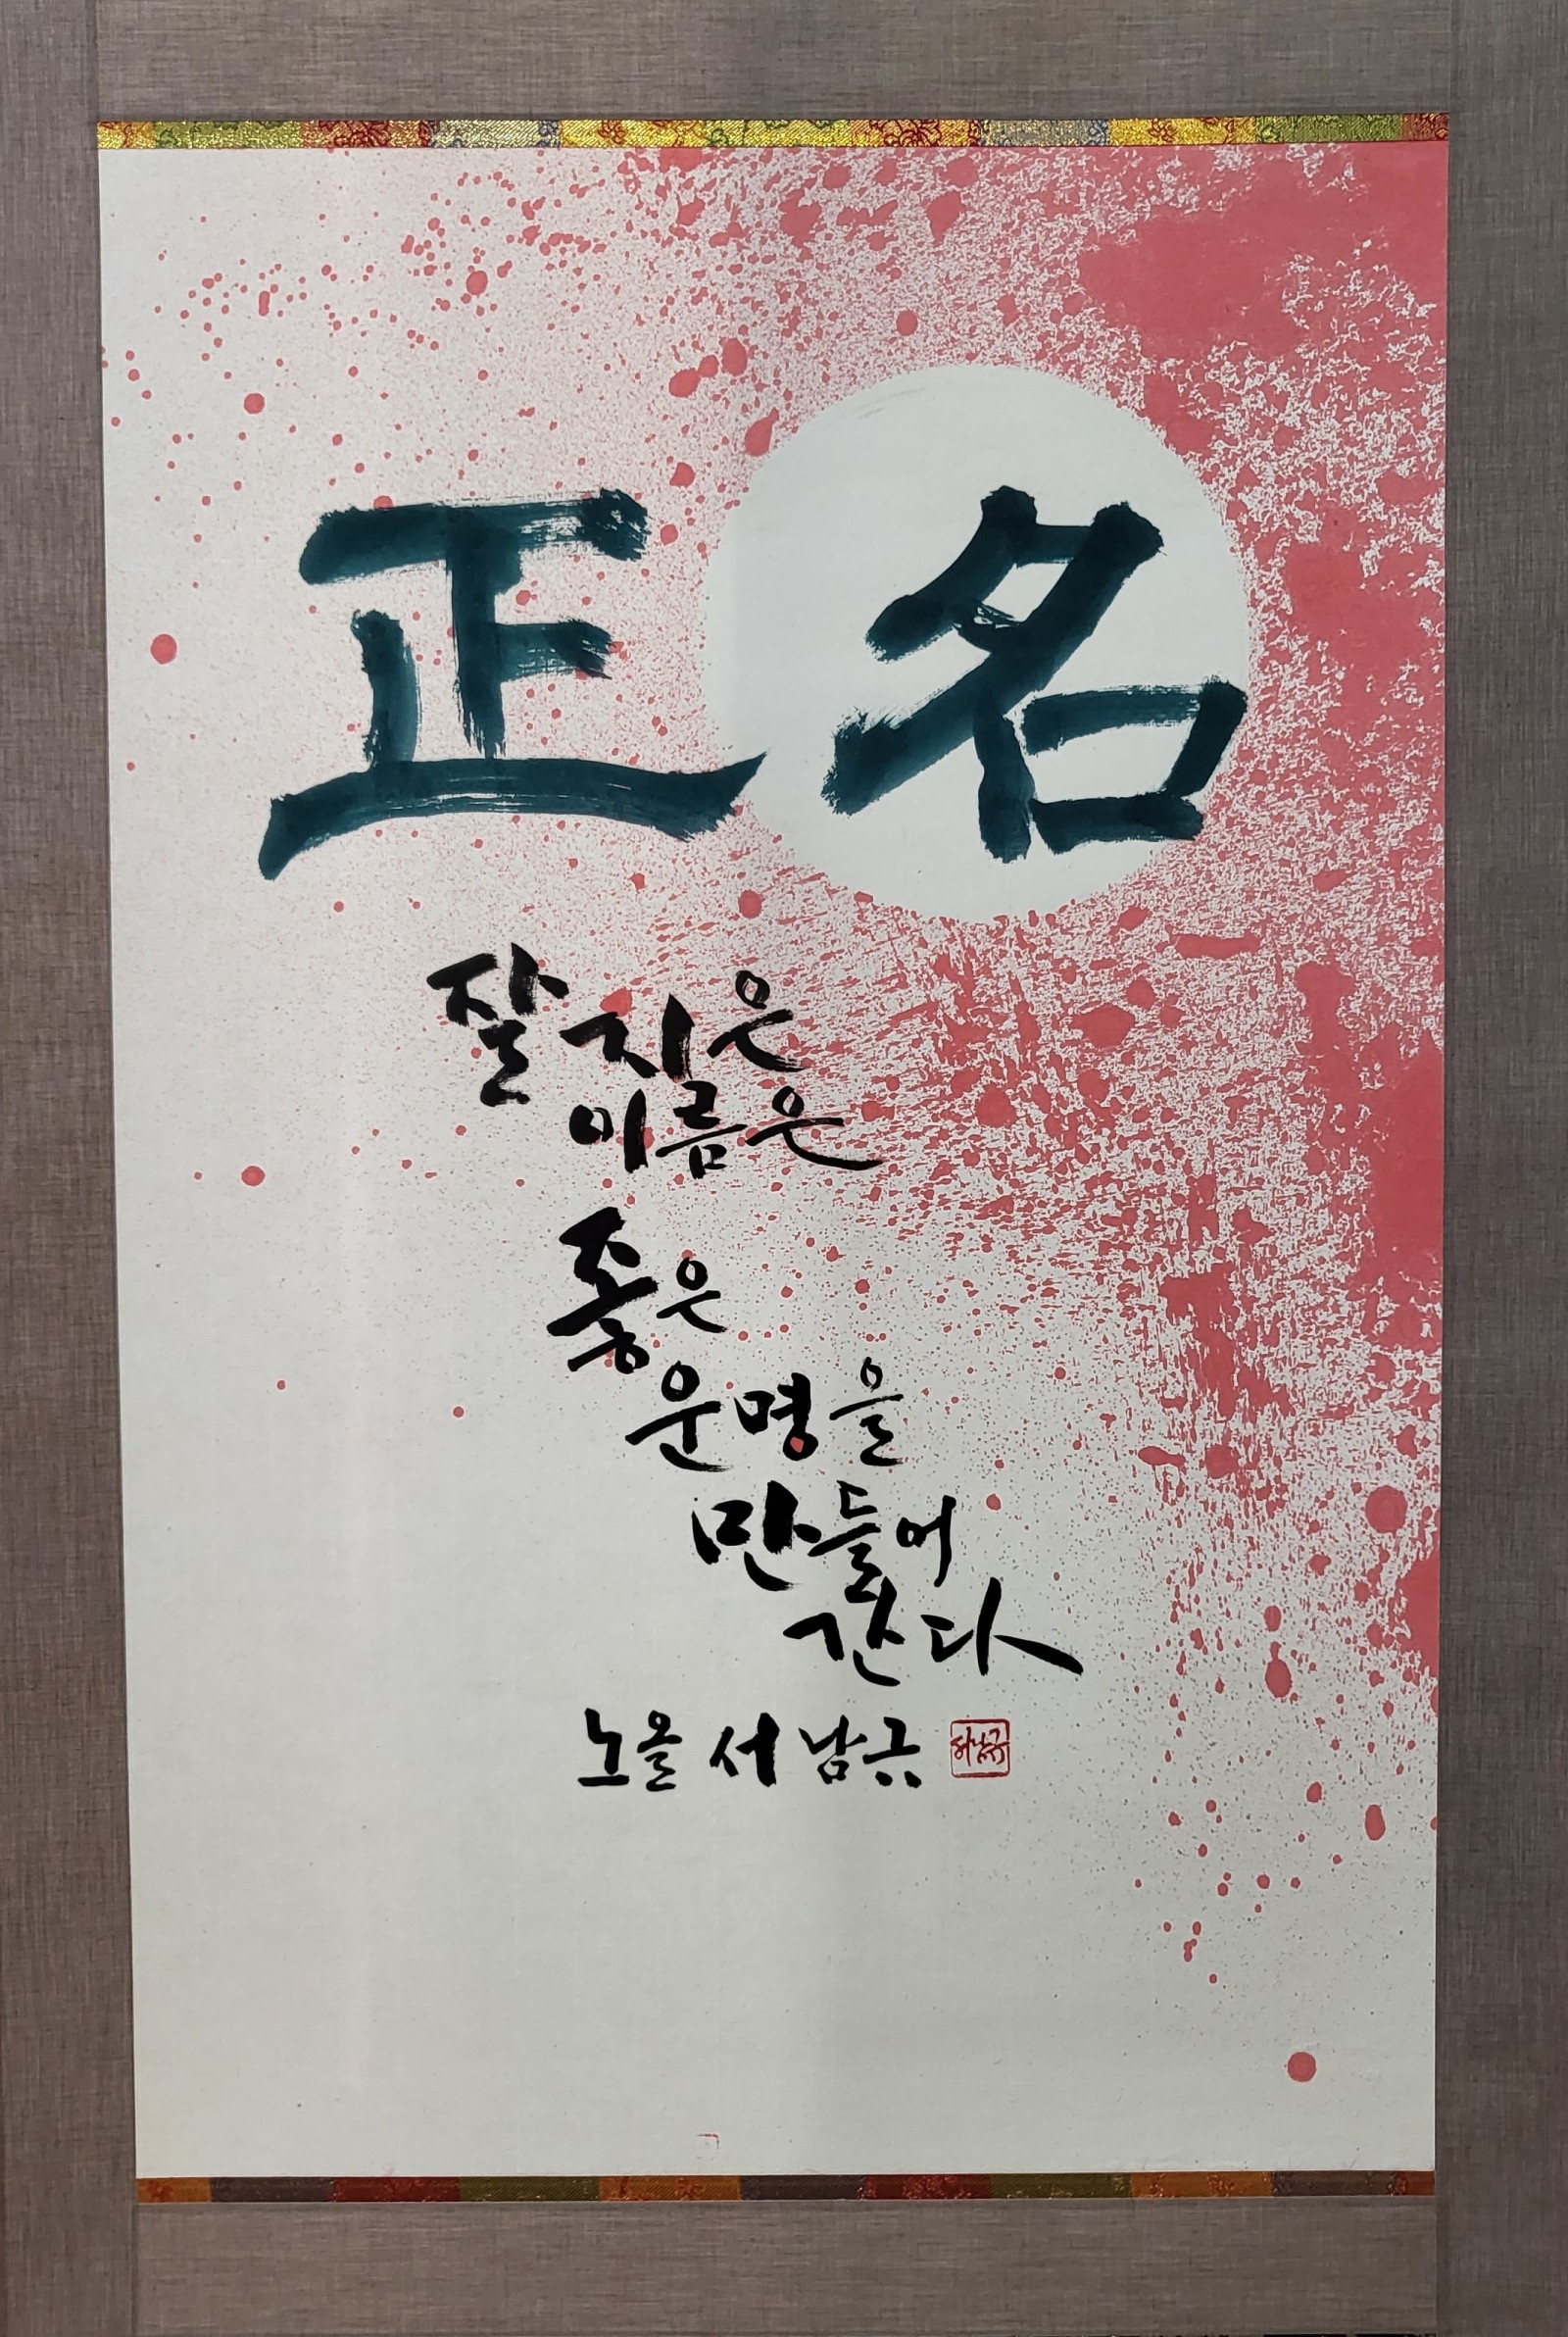 正名
잘 지은
이름은
좋은
운명을
만들어
간다
노을 서남금